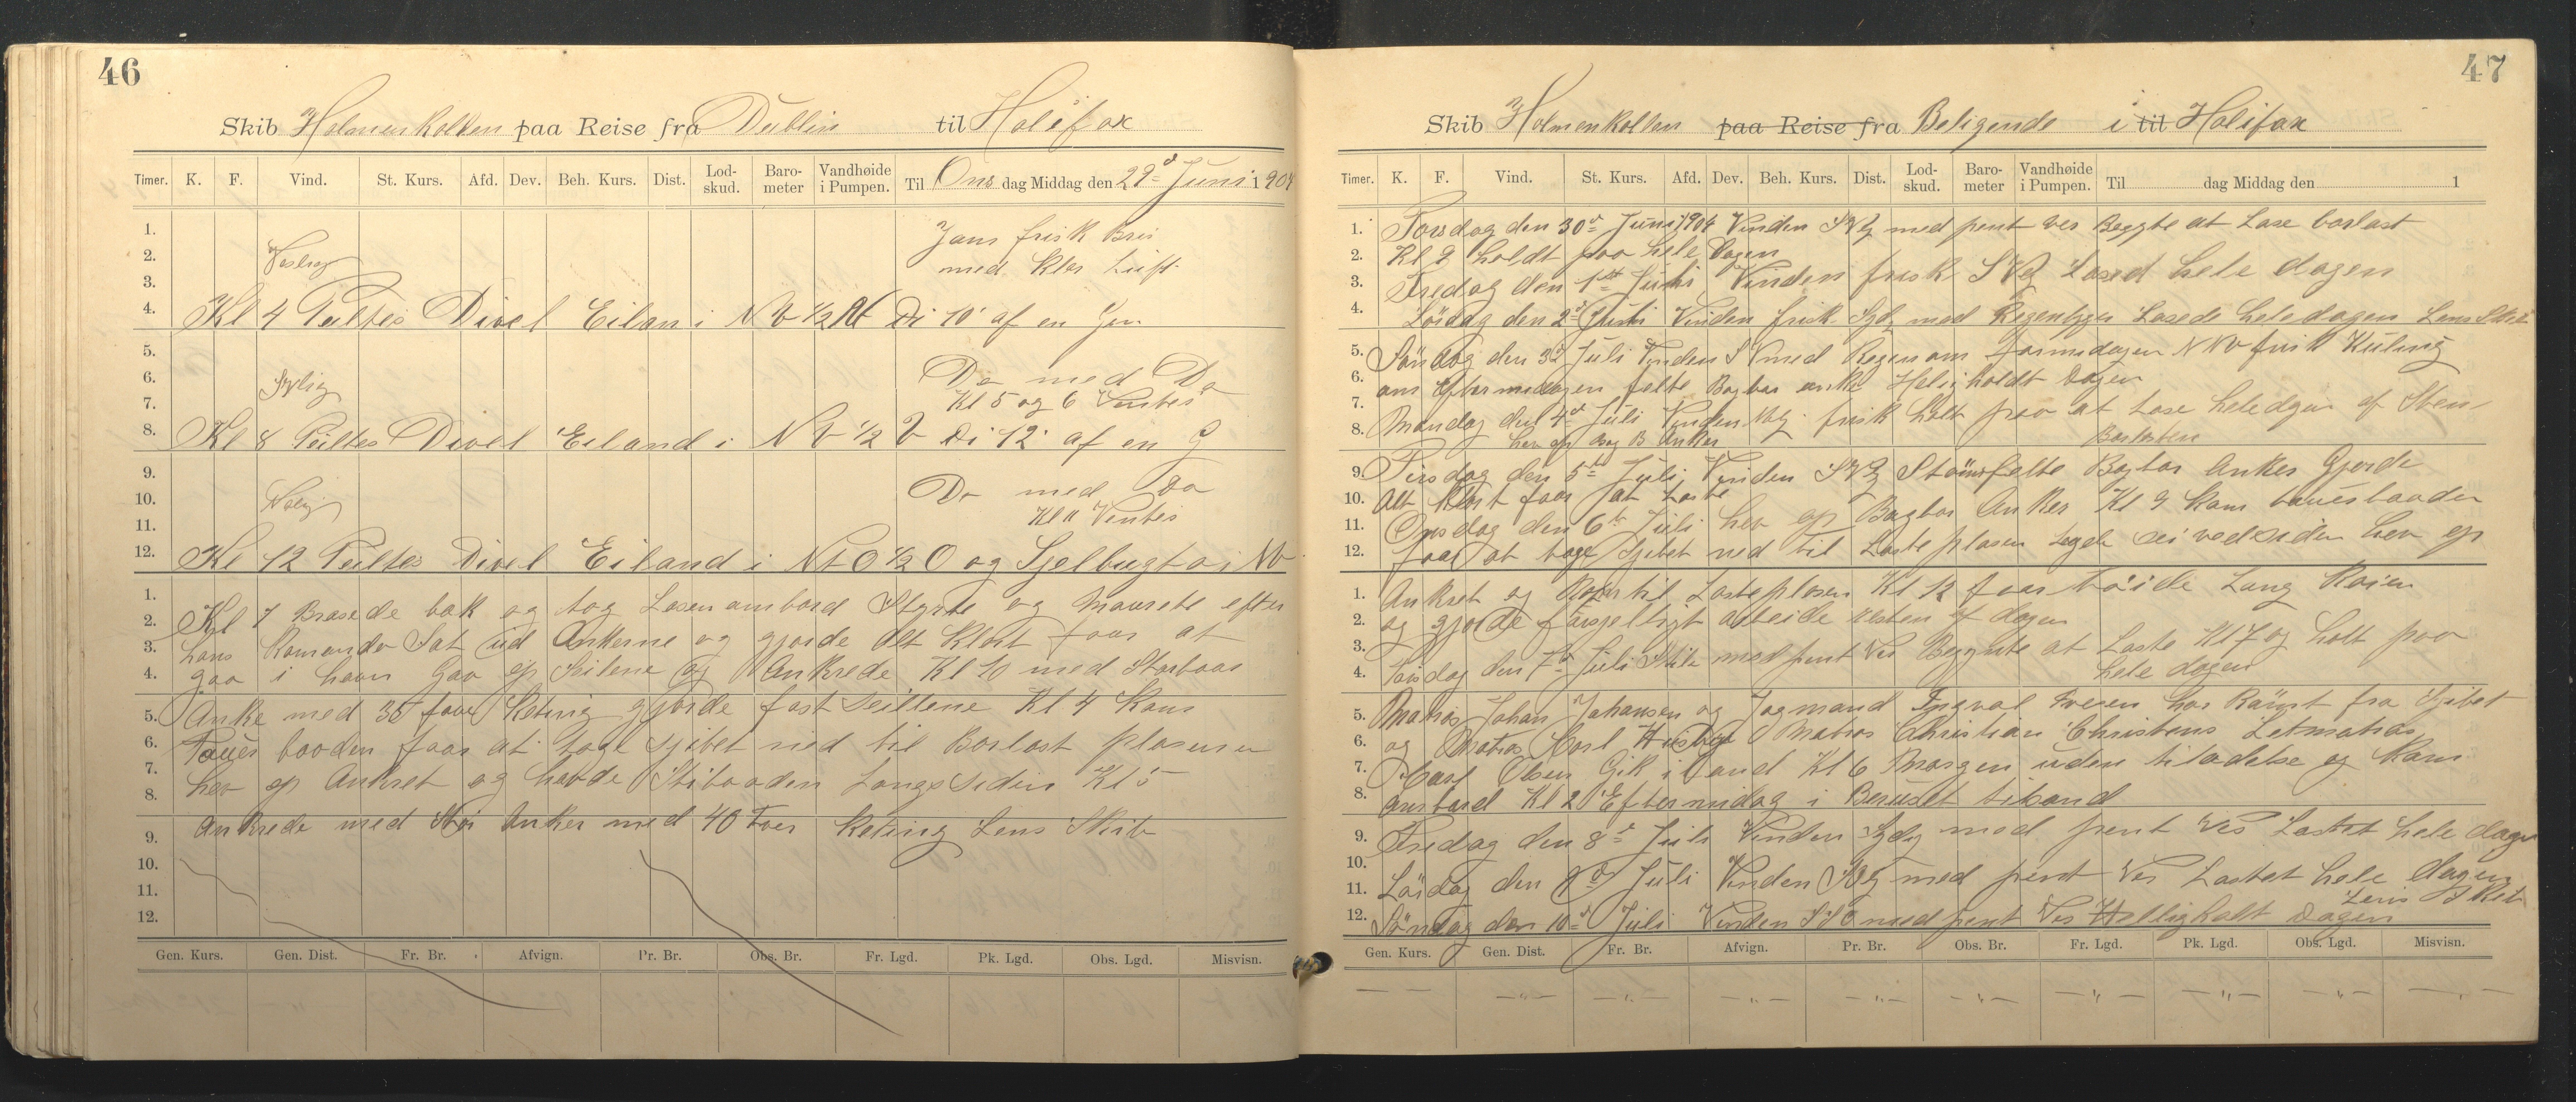 46
Skib Holmenkollen paa Reise fra Dublin til Halifax
Timer. K. F. Vind. St. Kurs. Afd. Dev. Beh. Kurs. Dist. Lod-skud. Baro-meter Vandhøide i Pumpen. Til Ons dag Middag den 29d Juni 1904
1. Jam frisk Bris
2. Veslig med klar Luft
3.
4. Kl 4 Peiltes Divel Eilan i NV 1/2 N Di 10' af en Gjen
5. Do med Do
6. SVlig Kl 5 og 6 Ventes
7.
8. Kl 8 Peiltes Divel Eiland i NV 1/2 V Di 12' af en G
9. Do med Do
10. Volig Kl 11 Ventes
11.
12. Kl 12 Peiltes Divel Eiland i NtO 1/2 O og Sjelbugta i NV
1. Kl 7 Brasede bak og tog Losen ambord Styrte og Manrete efter
2. hans Komando Sat ud Ankerne og gjorde alt klort faar at
3. gaa i havn Gav op Seilene og Ankrede Kl 10 med Storboar
4. Anke med 35 favn Keting gjorde fast Seillene Kl 4 Kam
5. Tauer baaden faar at tage Sjibet ned til Barlast plasen
6. hev op Ankret og havde Stibaaden Langs Seden Kl 5
7.
8. Ankrede med Anker med 40 Faer Keting Lens Skib
9.
10.
11.
12.
Gen. Kurs. Gen. Dist. Fr. Br. Afvign. Pr. Br. Obs. Br. Fr. Lgd. Pk. Lgd. Obs. Lgd. Misvisn.
47
Skib Holmenkollen paa Reise fra Beligende i til Halifax
Timer. K. F. Vind. St. Kurs. Afd. Dev. Beh. Kurs. Dist. Lod-skud. Baro-meter Vandhøide i Pumpen. Til dag Middag den 1
1. Torsdag den 30d Juni 1904 Vinden SVlg med pent ver Beggte at Lase barlast
2. Kl 9 holdt paa hele Dagen
3. Fredag den 1st Juli Vinden frisk SVlg Lased hele dagen
4. Lördag den 2d Juli Vinden frisk Sydl med Regenbyger Losede hele dagen Lens Skib
5. Söndag den 3d Juli Vinden SV med Regen om Formedagen NNV frisk Kuling
6. om Eftermedagen felte Bagbor anke Heligholdt Dagen
7. Mandag den 4d Juli Vinden Vlg frisk holt paa at Lose hele dgen af Sten
8. hev op Bag B Anker Barlasten
9. Tirsdag den 5te Juli Vinden SVlg Stömfelte Bagbor Anker Gjorde
10. alt klort faar at Laste
11. Onsdag den 6te Juli hev op Bagbor Anker Kl 9 kam tauerbaaden
12. faar at tage Sjibet ned til Lasteplasen Legde sei vedsiden hev op
1. Ankret og til Lasteplasen Kl 12 faar töide Lang Kaien
2. og gjorde farsjelligt arbeide resten af dagen
3. Torsdag den 7d Juli Stile med pent Ver Begynte at Laste Kl 7 og holt paa
4. hele dagen
5. Matros Johan Johansen og Jogmand Ingval Iversen har Römt fra Sjibet
6. og Matros Karl Husby Matros Christian Christens Letmatros
7. Karl Olsen Gik i Land Kl 6 Morgen uden tiladelse og Kam
8. ambord Kl 2 Eftermidag i Beruset tilsand
9. Fredag den 8d Juli Vinden Sydlg med pent Ver Lastet hele dagen
10.
11. Lördag den 9d Juli Vinden SVlg med pent Ver Lastet hele dagen
Lens Skib
12. Söndag den 10d Juli Vinden SSO med pent Ver Helligholt Dagen
Gen. Kurs. Gen. Dist. Fr. Br. Afvign. Pr. Br. Obs. Br. Fr. Lgd. Pk. Lgd. Obs. Lgd. Misvisn.
— — —"— —"— —"— —"— —"— —"— —"— —"— —,—